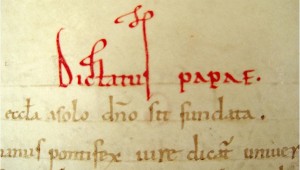 Dictatus papae.
eccła asolo dño sit fundata.
anus pontifex iure dicat̃ univer